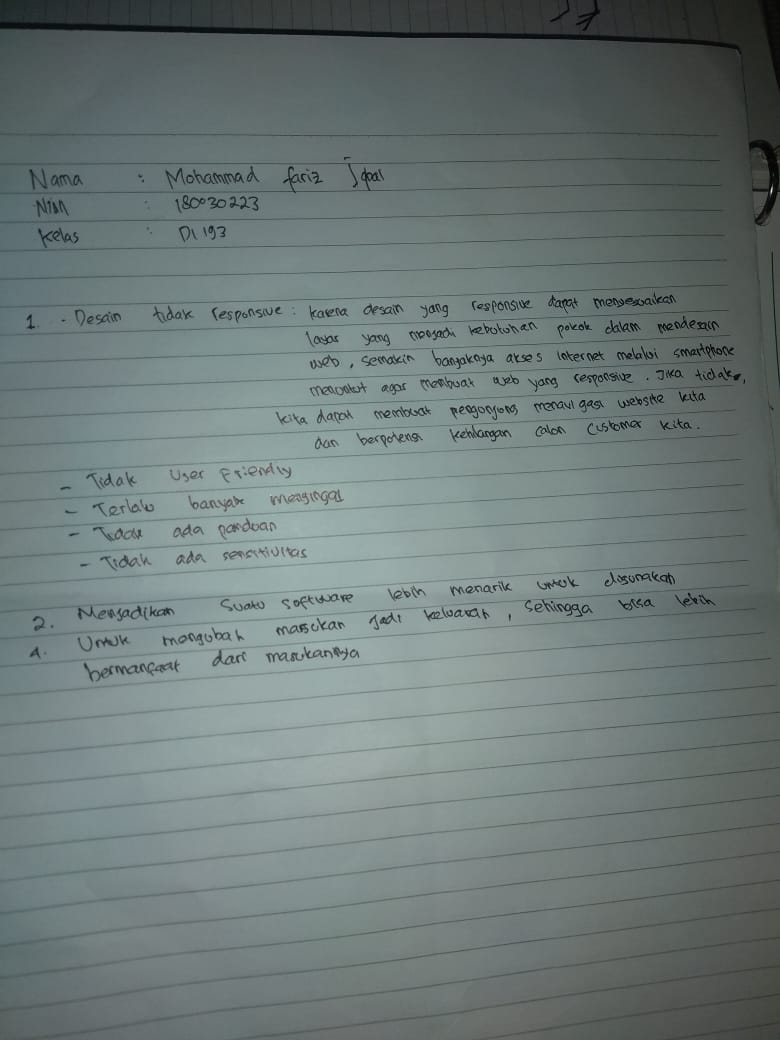 Nama : Mohammad fariz Iqbal
Nim : 180030223
Kelas : DI 193
1. - Desain tidak responsive : karena desain yang responsive dapat menyesuaikan
layar yang menjadi kebutuhan pokok dalam mendesain
web, semakin banyaknya akses internet melalui smartphone
menuntut agar membuat web yang responsive. Jika tidak,
kita dapat membuat pengunjung menavigasi website kita
dan berpotensi kehilangan calon customer kita.
- Tidak User Friendly
- Terlalu banyak mengingat
- Tidak ada panduan
- Tidak ada sensitivitas
2. Menjadikan suatu software lebih menarik untuk digunakan
4. Untuk mengubah masukan jadi keluaran, sehingga bisa lebih
bermanfaat dari masukannya